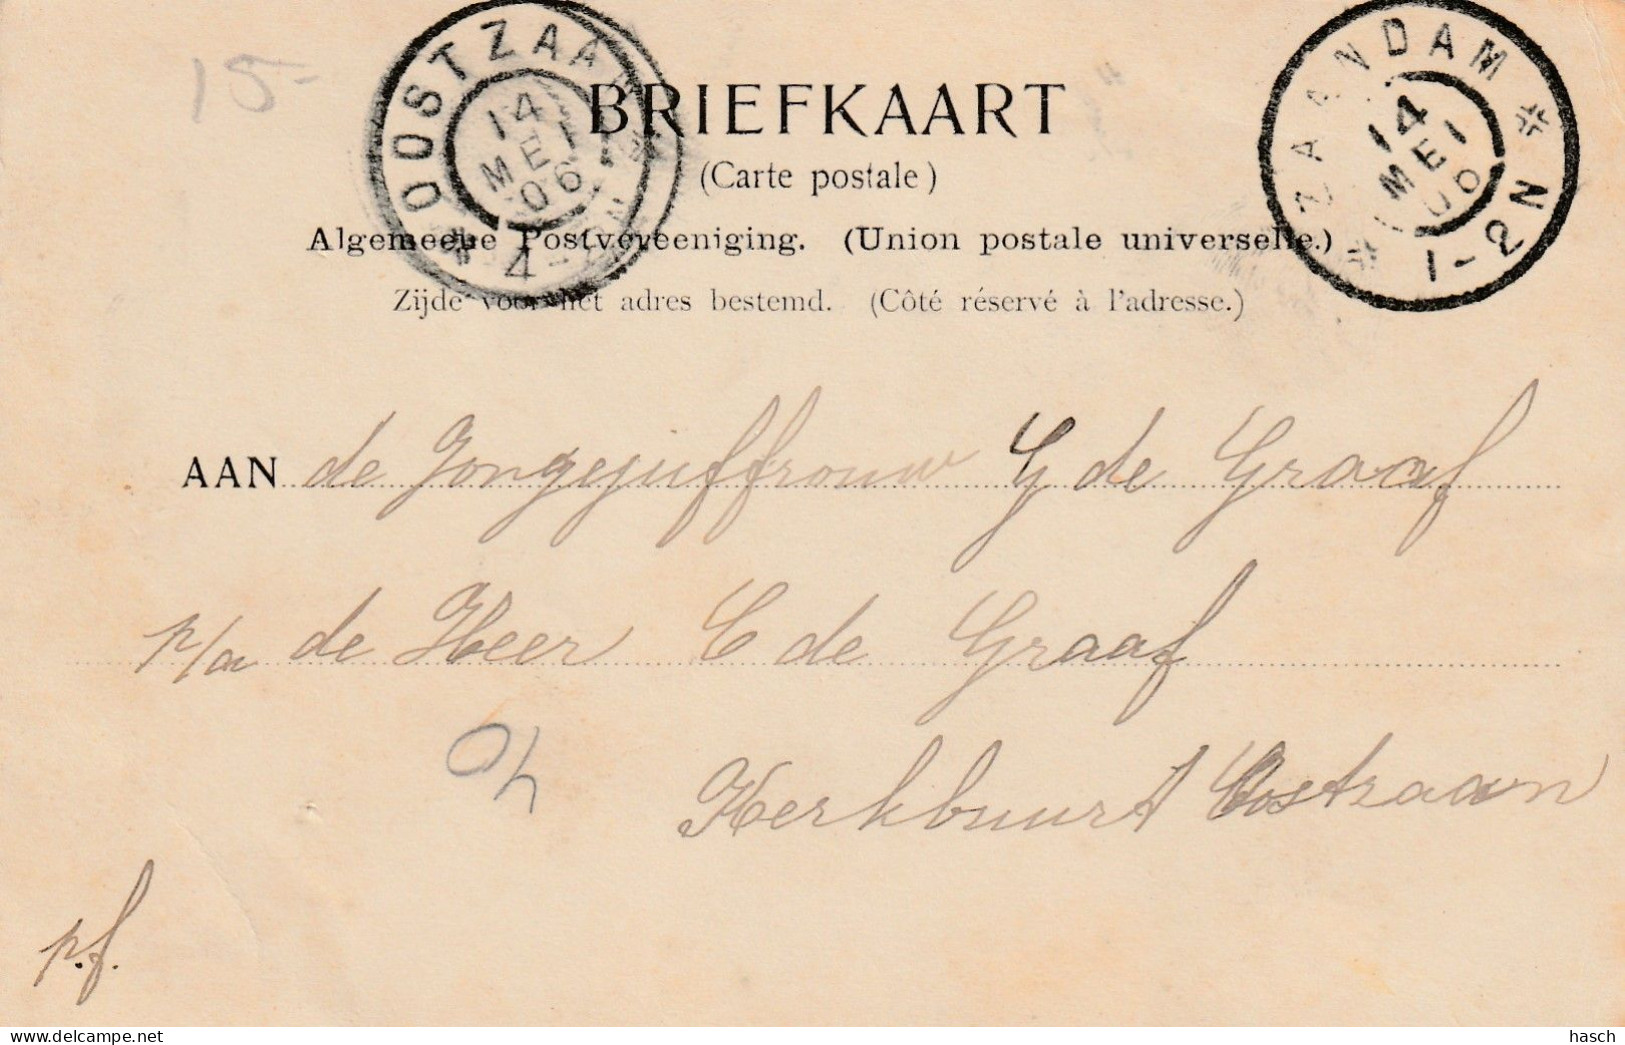 15-
OOSTZAAN
14
MEI
06
4-
ZAANDAM
14
MEI
06
1-2N
BRIEFKAART
(Carte postale)
Algemeene Postvereeniging. (Union postale universelle.)
Zijde voor het adres bestemd. (Côté réservé à l'adresse.)
AAN de Jongejuffrouw G de Graaf
p/a de Heer C de Graaf
Kerkbuurt Oostzaan
p.f.
hasch